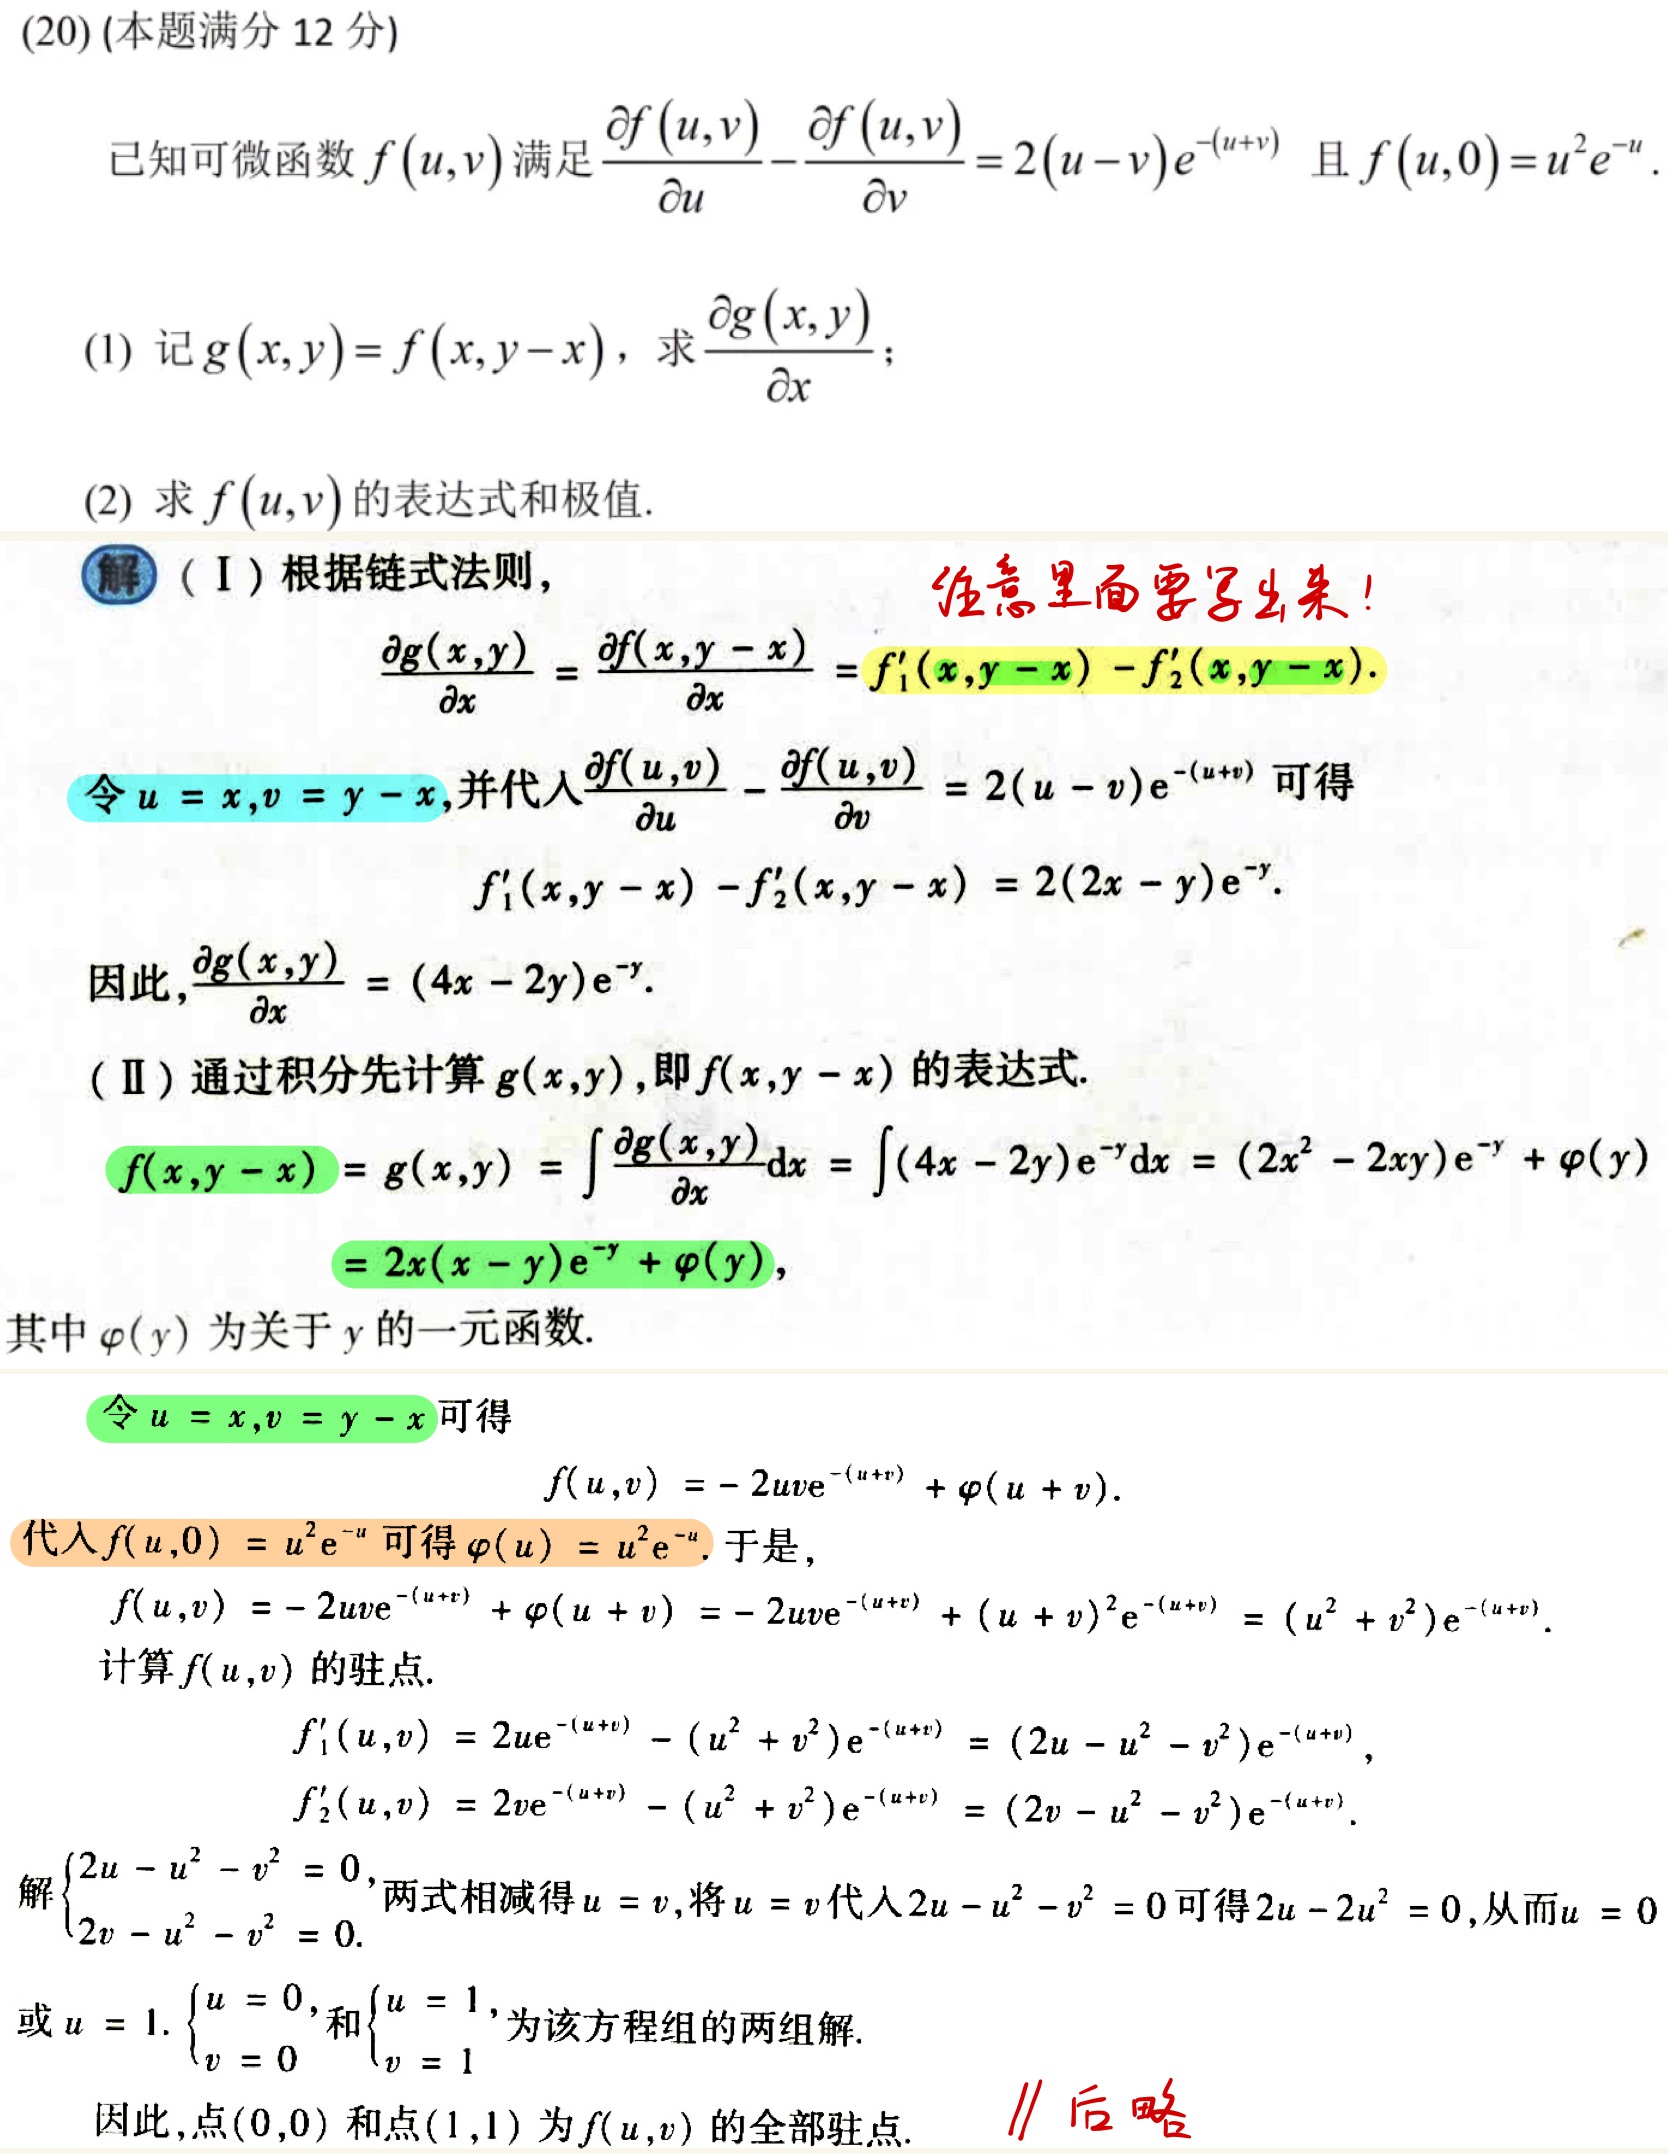 (20) (本题满分 12 分)
已知可微函数 f(u,v) 满足 ∂f(u,v)/∂u − ∂f(u,v)/∂v = 2(u−v)e^{-(u+v)} 且 f(u,0)=u²e^{-u}.
(1) 记 g(x,y)=f(x,y−x)，求 ∂g(x,y)/∂x；
(2) 求 f(u,v) 的表达式和极值.
解 (Ⅰ) 根据链式法则,
注意里面要写出来!
∂g(x,y)/∂x = ∂f(x,y − x)/∂x = f′₁(x,y − x) − f′₂(x,y − x).
令 u = x,v = y − x,并代入 ∂f(u,v)/∂u − ∂f(u,v)/∂v = 2(u − v)e^{-(u+v)} 可得
f′₁(x,y − x) − f′₂(x,y − x) = 2(2x − y)e^{-y}.
因此, ∂g(x,y)/∂x = (4x − 2y)e^{-y}.
(Ⅱ) 通过积分先计算 g(x,y),即 f(x,y − x) 的表达式.
f(x,y − x) = g(x,y) = ∫ ∂g(x,y)/∂x dx = ∫(4x − 2y)e^{-y}dx = (2x² − 2xy)e^{-y} + φ(y)
= 2x(x − y)e^{-y} + φ(y),
其中 φ(y) 为关于 y 的一元函数.
令 u = x,v = y − x 可得
f(u,v) = − 2uve^{-(u+v)} + φ(u + v).
代入 f(u,0) = u²e^{-u} 可得 φ(u) = u²e^{-u}. 于是,
f(u,v) = − 2uve^{-(u+v)} + φ(u + v) = − 2uve^{-(u+v)} + (u + v)²e^{-(u+v)} = (u² + v²)e^{-(u+v)}.
计算 f(u,v) 的驻点.
f′₁(u,v) = 2ue^{-(u+v)} − (u² + v²)e^{-(u+v)} = (2u − u² − v²)e^{-(u+v)},
f′₂(u,v) = 2ve^{-(u+v)} − (u² + v²)e^{-(u+v)} = (2v − u² − v²)e^{-(u+v)}.
解 {2u − u² − v² = 0, 2v − u² − v² = 0. 两式相减得 u = v,将 u = v 代入 2u − u² − v² = 0 可得 2u − 2u² = 0,从而 u = 0
或 u = 1. {u = 0, v = 0 和 {u = 1, v = 1 为该方程组的两组解.
因此,点(0,0) 和点(1,1) 为 f(u,v) 的全部驻点.
// 后略